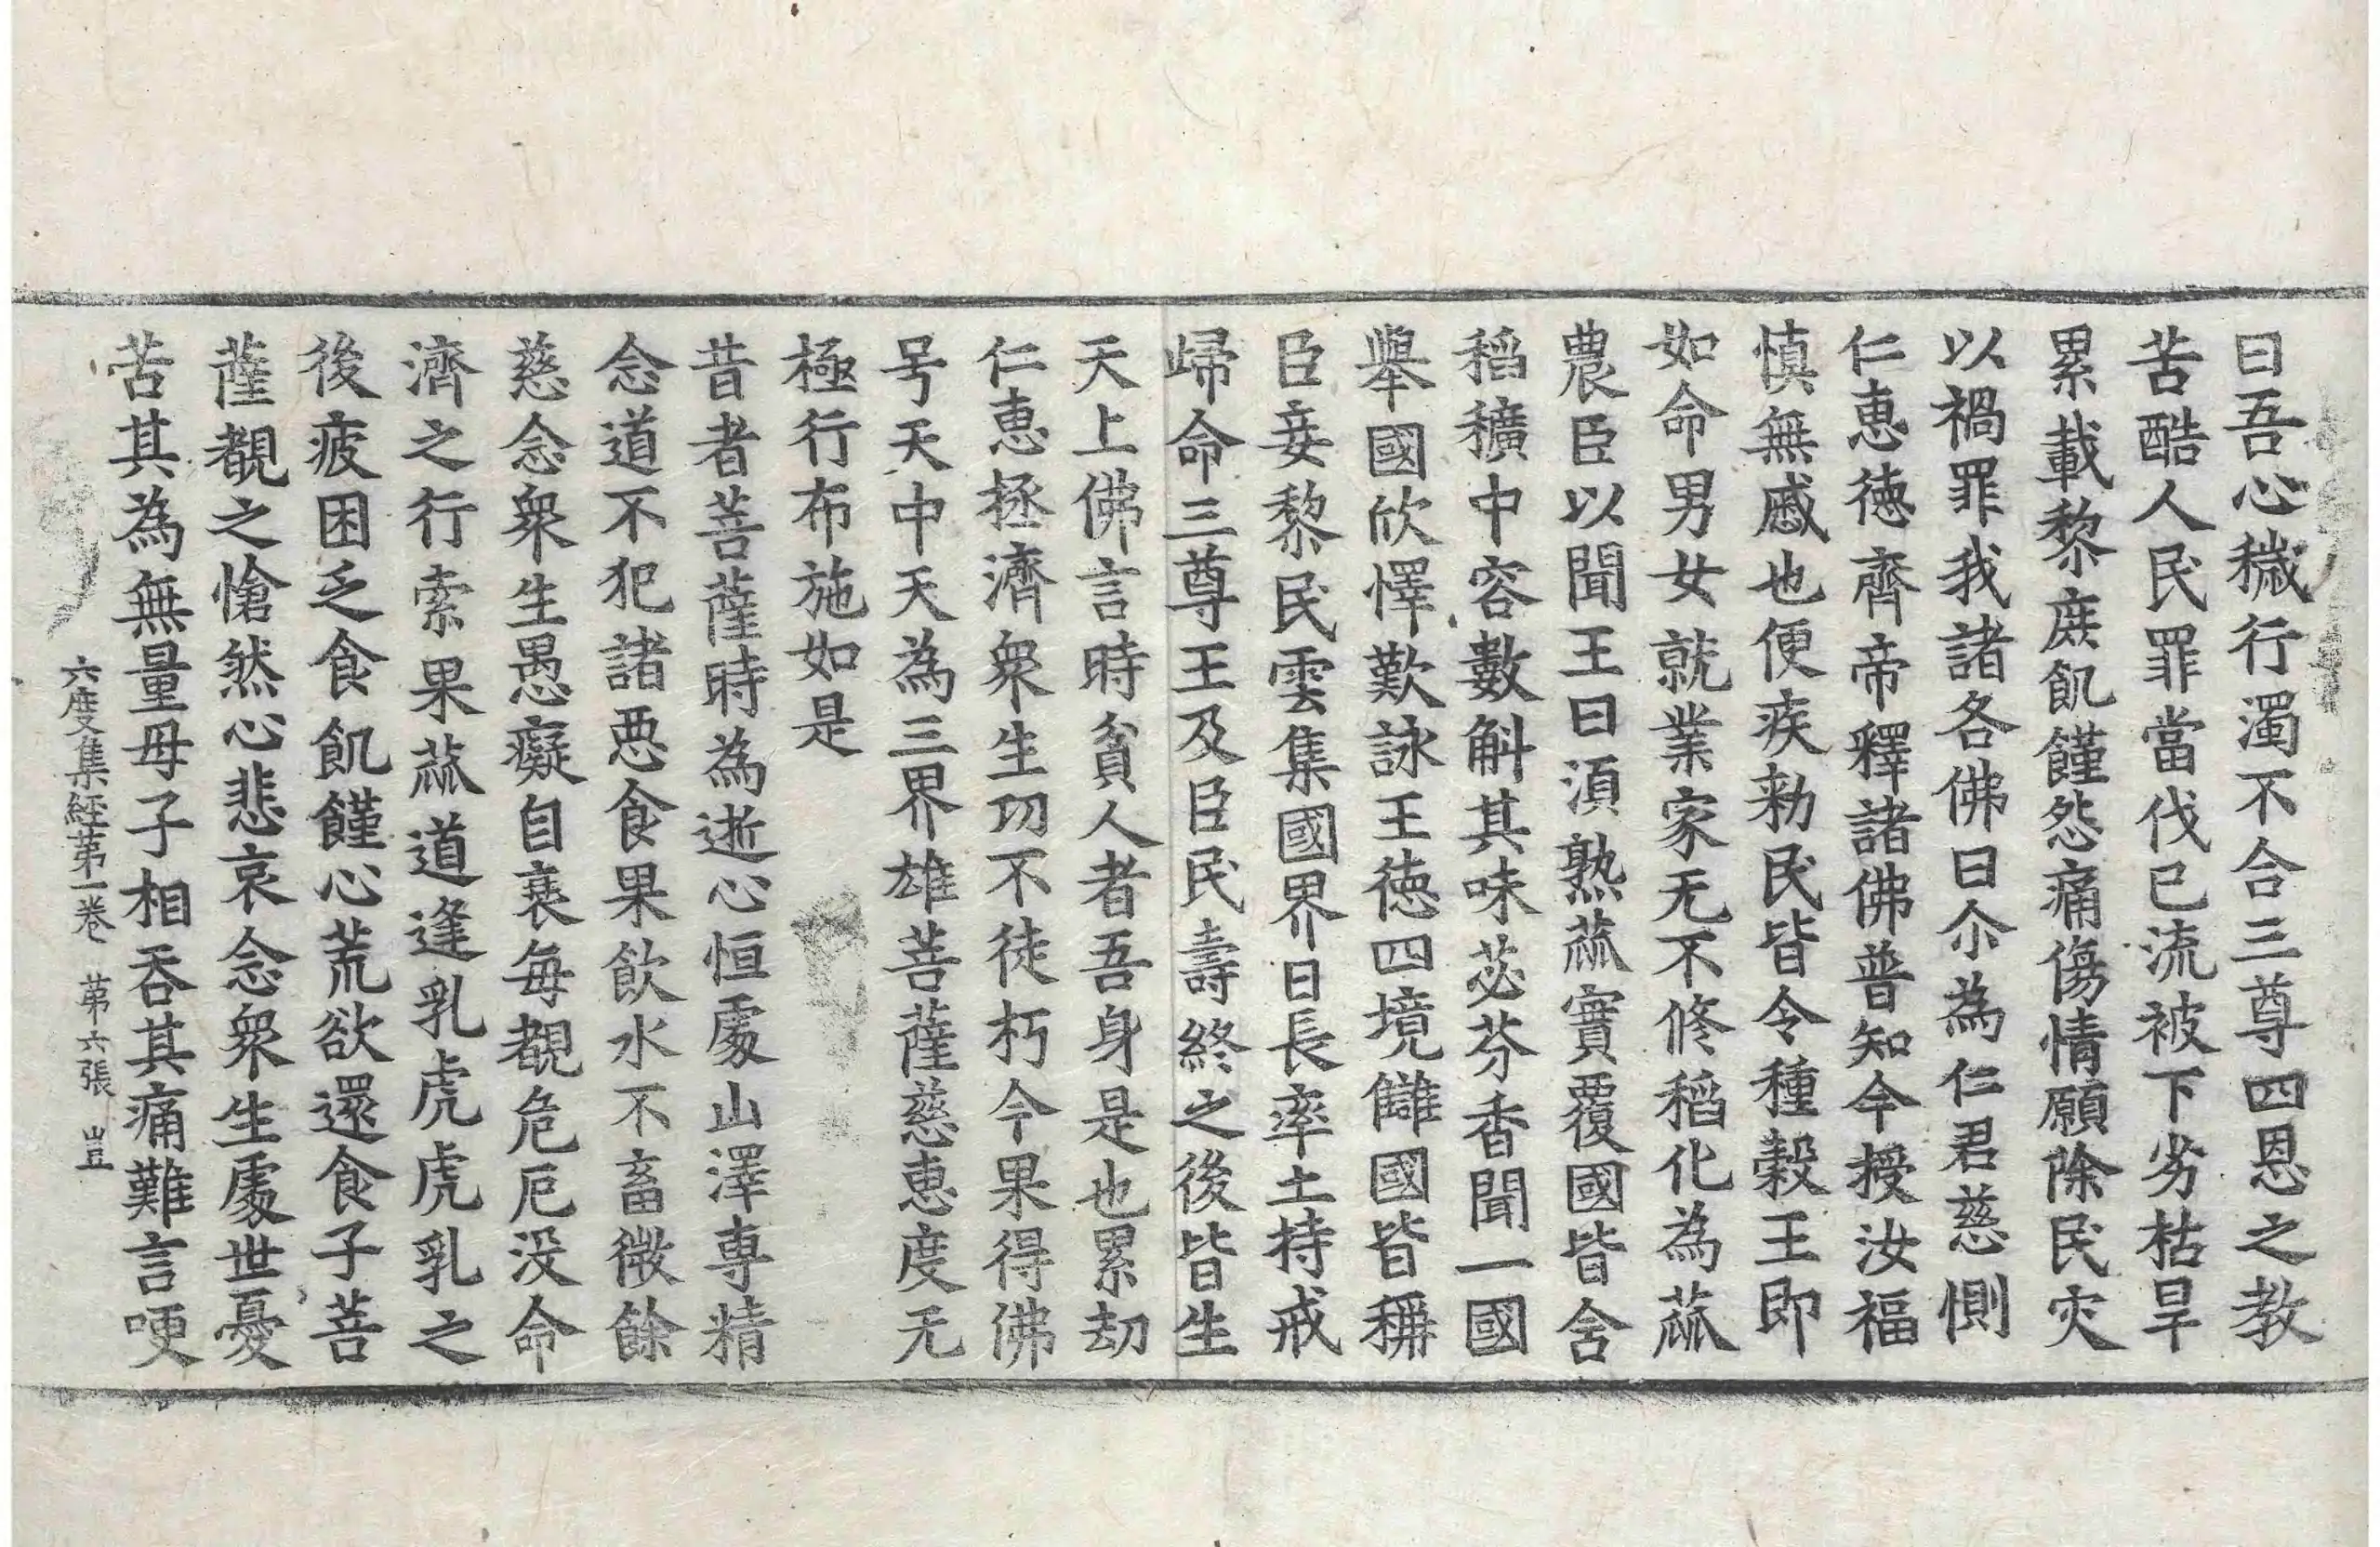 曰吾心穢行濁不合三尊四恩之教
苦酷人民罪當伐已流被下劣枯旱
累載黎庶飢饉怨痛傷情願除民灾
以禍罪我諸各佛曰尒為仁君慈惻
仁恵徳齊帝釋諸佛普知今授汝福
慎無慼也便疾勑民皆令種穀王即
如命男女就業家无不修稻化為蓏
農臣以聞王曰湏熟蓏實覆國皆含
稻穬中容數斛其味苾芬香聞一國
舉國欣懌歎詠王徳四境讎國皆稱
臣妾黎民雲集國界日長率土持戒
歸命三尊王及臣民壽終之後皆生
天上佛言時貧人者吾身是也累劫
仁恵拯濟衆生功不徒朽今果得佛
号天中天為三界雄菩薩慈恵度无
極行布施如是
昔者菩薩時為逝心恒處山澤専精
念道不犯諸悪食果飲水不畜微餘
慈念衆生愚癡自衰每覩危厄没命
濟之行索果蓏道逢乳虎虎乳之
後疲困乏食飢饉心荒欲還食子菩
薩覩之愴然心悲哀念衆生處世憂
苦其為無量母子相吞其痛難言哽
六度集経苐一巻 苐六張 豈